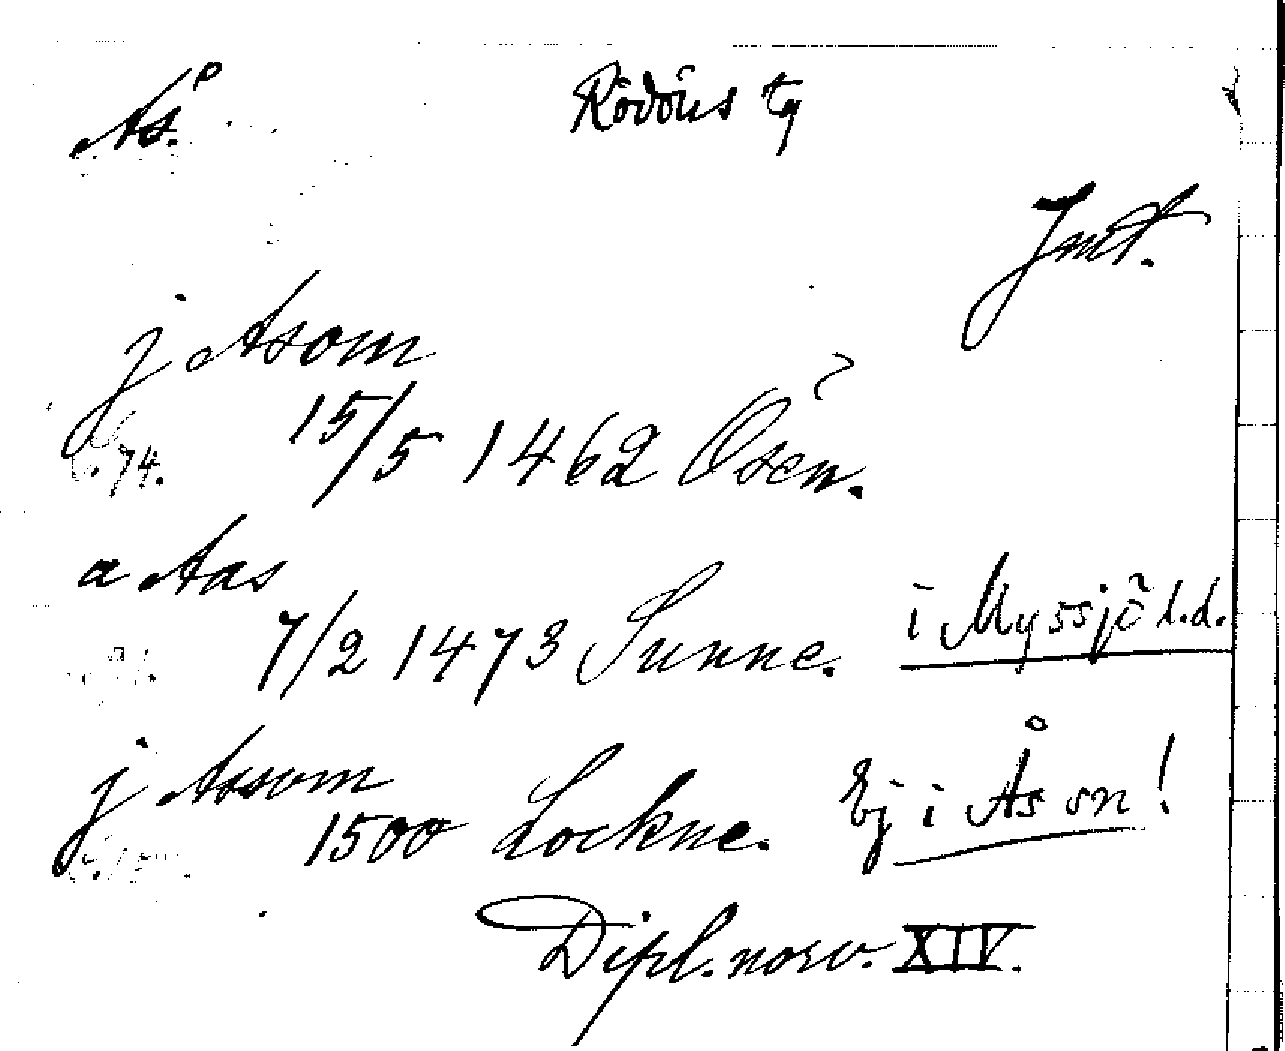 Ås. Rödöns tg
Jmt.
j Asom
15/5 1462 Osen. ?
74.
a Aas
7/2 1473 Sunne. i Myssjö l.d.
j Assom
1500 Lockne. Ej i Ås sn!
Dipl. norv. XIV.